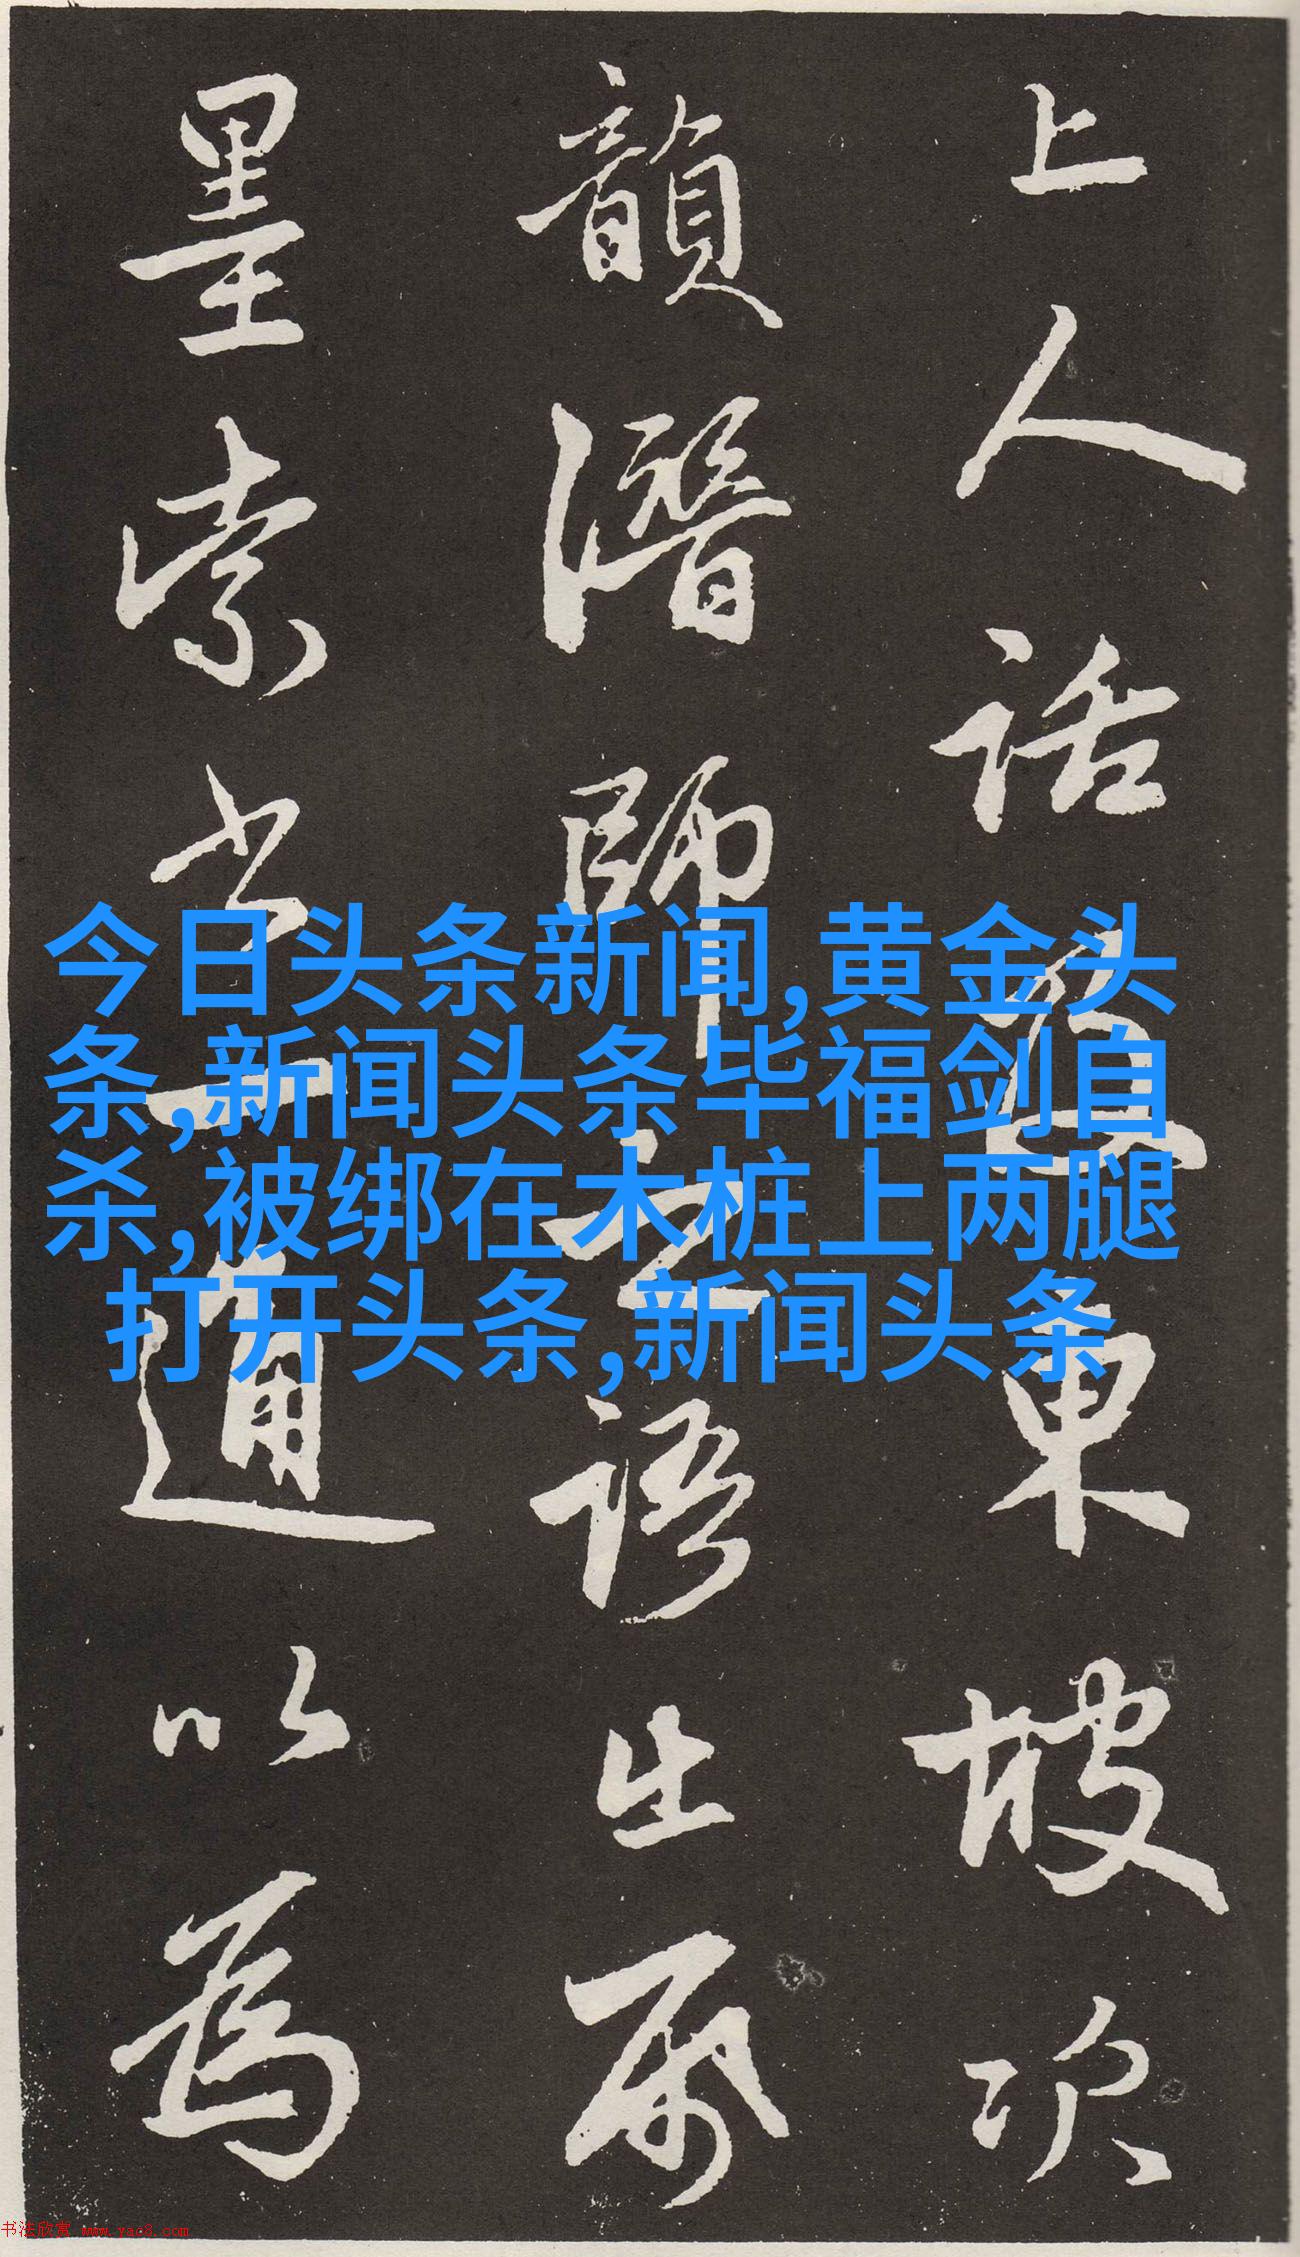 上人話及東坡次
韻潛師之語出所
墨索書一通以為
今日头条新闻,黄金头
条,新闻头条毕福剑自
杀,被绑在木桩上两腿
打开头条,新闻头条
书法欣赏 www.yac8.com